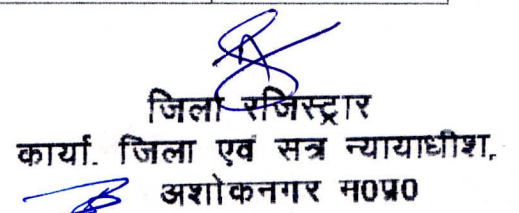 जिला रजिस्ट्रार
कार्या. जिला एवं सत्र न्यायाधीश,
अशोकनगर म0प्र0